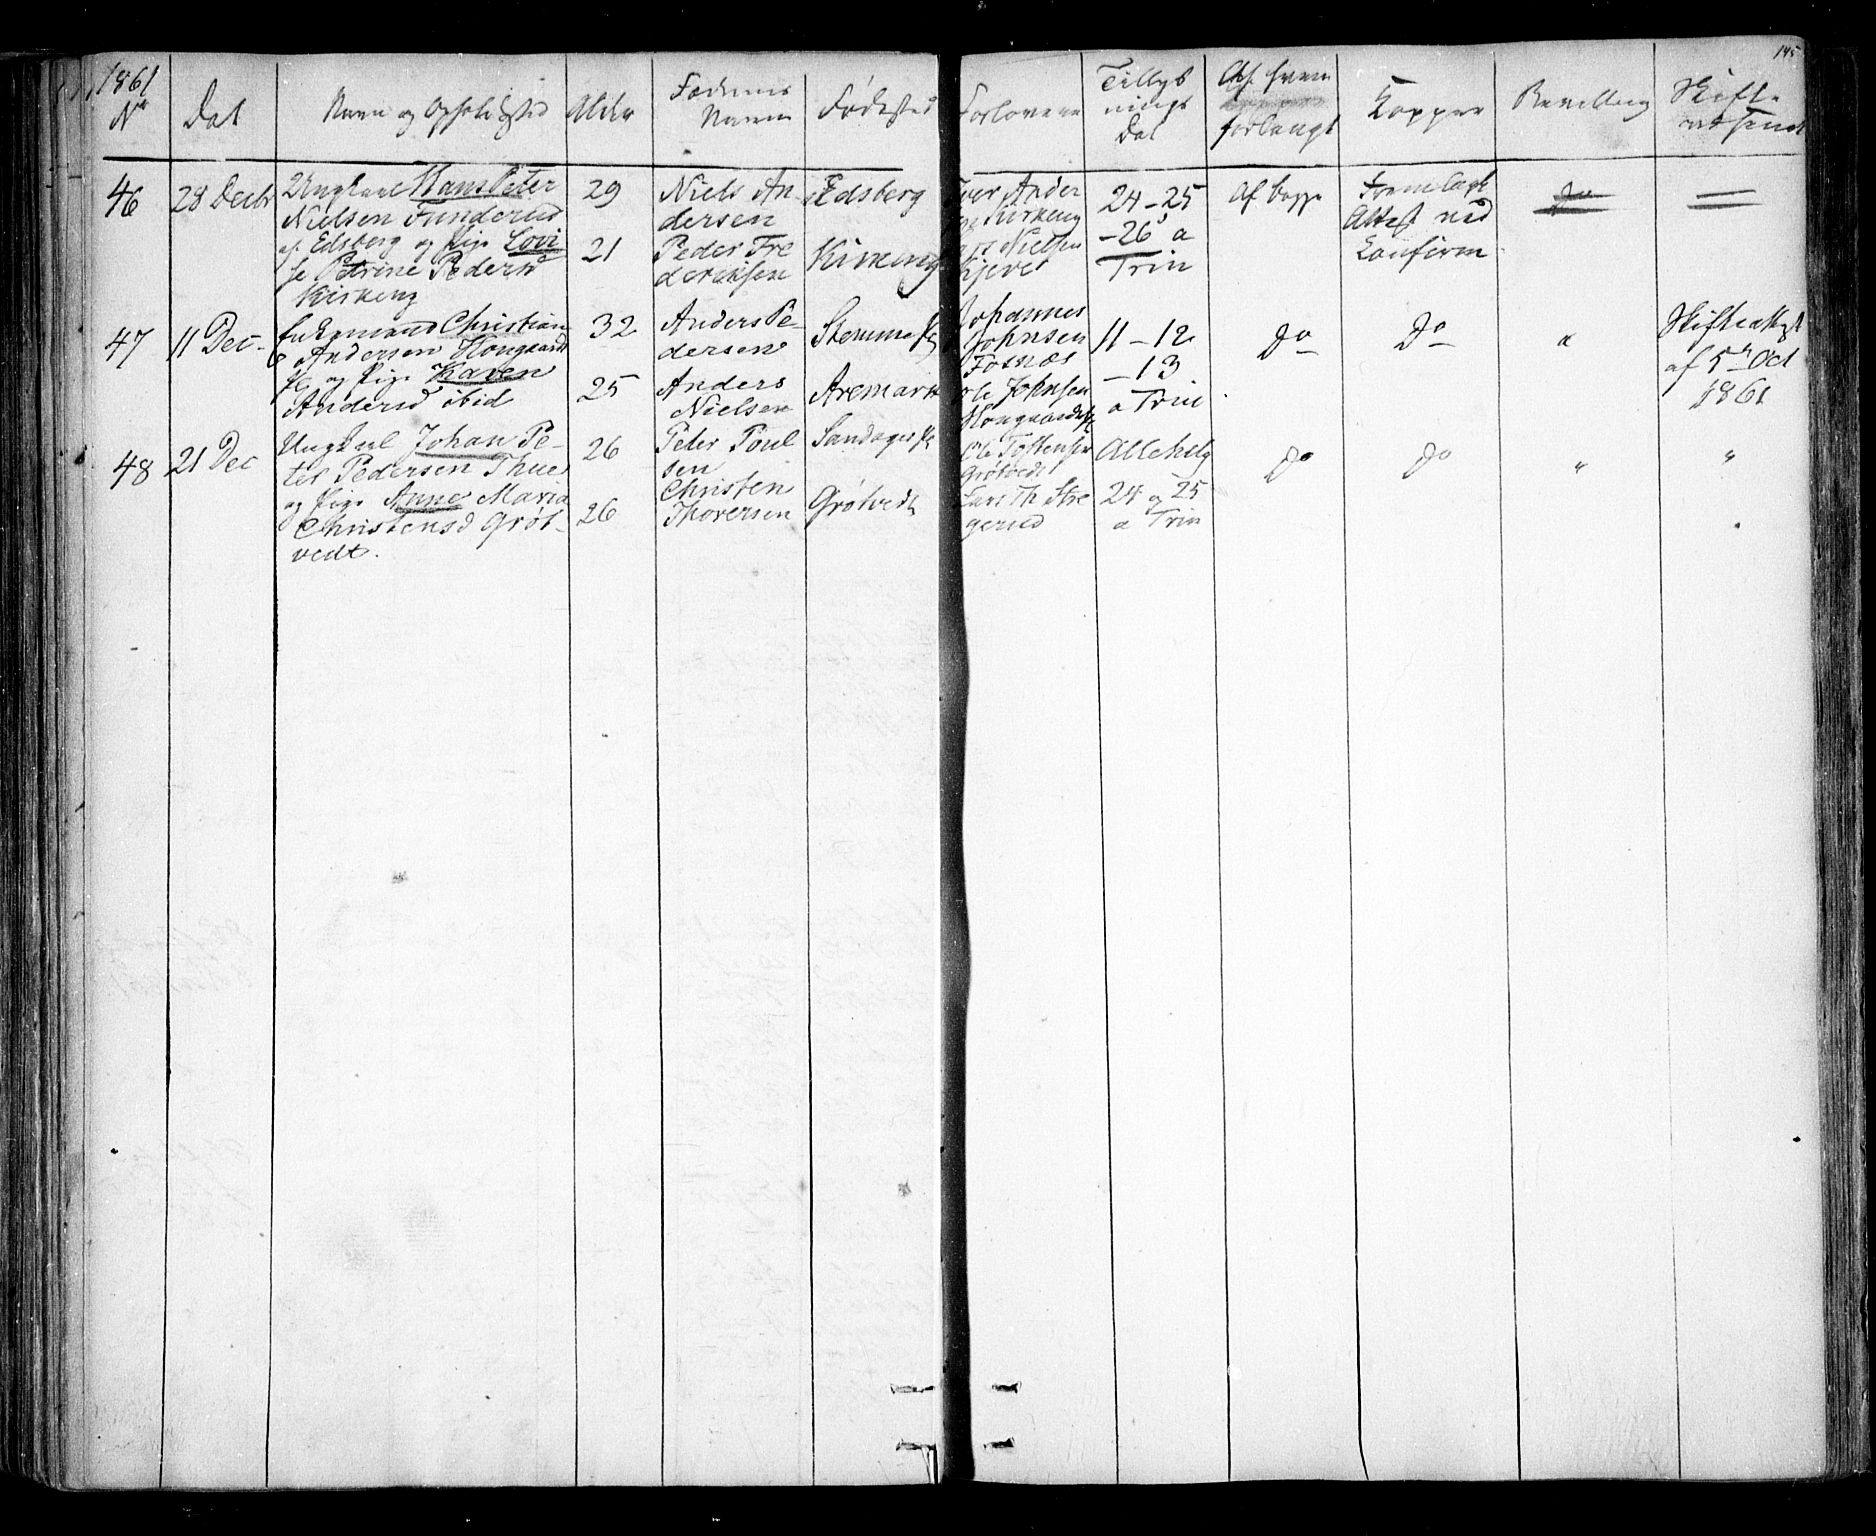 145
1861
No Dat Navn og Opholdssted Alder Fædrenes Navn Fødested Forlovere Tillysnings Dat Af hvem forlangt Kopper Bevilling Skifte
46 28 Decbr Ungkarl Hans Peter
Nielsen Funderud
af Edsberg og Pige Lovi
se Petrine Pedersd
Kirkeng
29
21
Niels An
dersen
Peder Fre
deriksen
Edsberg
Kirkeng
Iver Ander
Kirkeng
Nielsen
24-25
-26 a
Trin
Af begge
Fremlagt
Attest ved
Confirm
Do
47 11 Dec- Enkemand Christian
Andersen Kongaards
og Pige Karen
Andersd ibid
32
25
Anders Pe-
dersen
Anders
Nielsen
Stemme
Aremark
Johannes
Johnsen
Fosnæs
Ole Johnsen
11-12
-13
a Trin
Do
Do
"
af 5te Oct
1861
48 21 Dec Ungkarl Johan Pe-
ter Pedersen Thue
og Pige Anne Maria
Christensd Grøt-
vedt.
26
26
Peter Poul
sen
Christen
Thoresen
Grøtvedt
Ole Tostensen
Grøtvedt
Lars Th Stre
gerud
Allehelg
24 og 25
a Trin
Do
Do
"
"